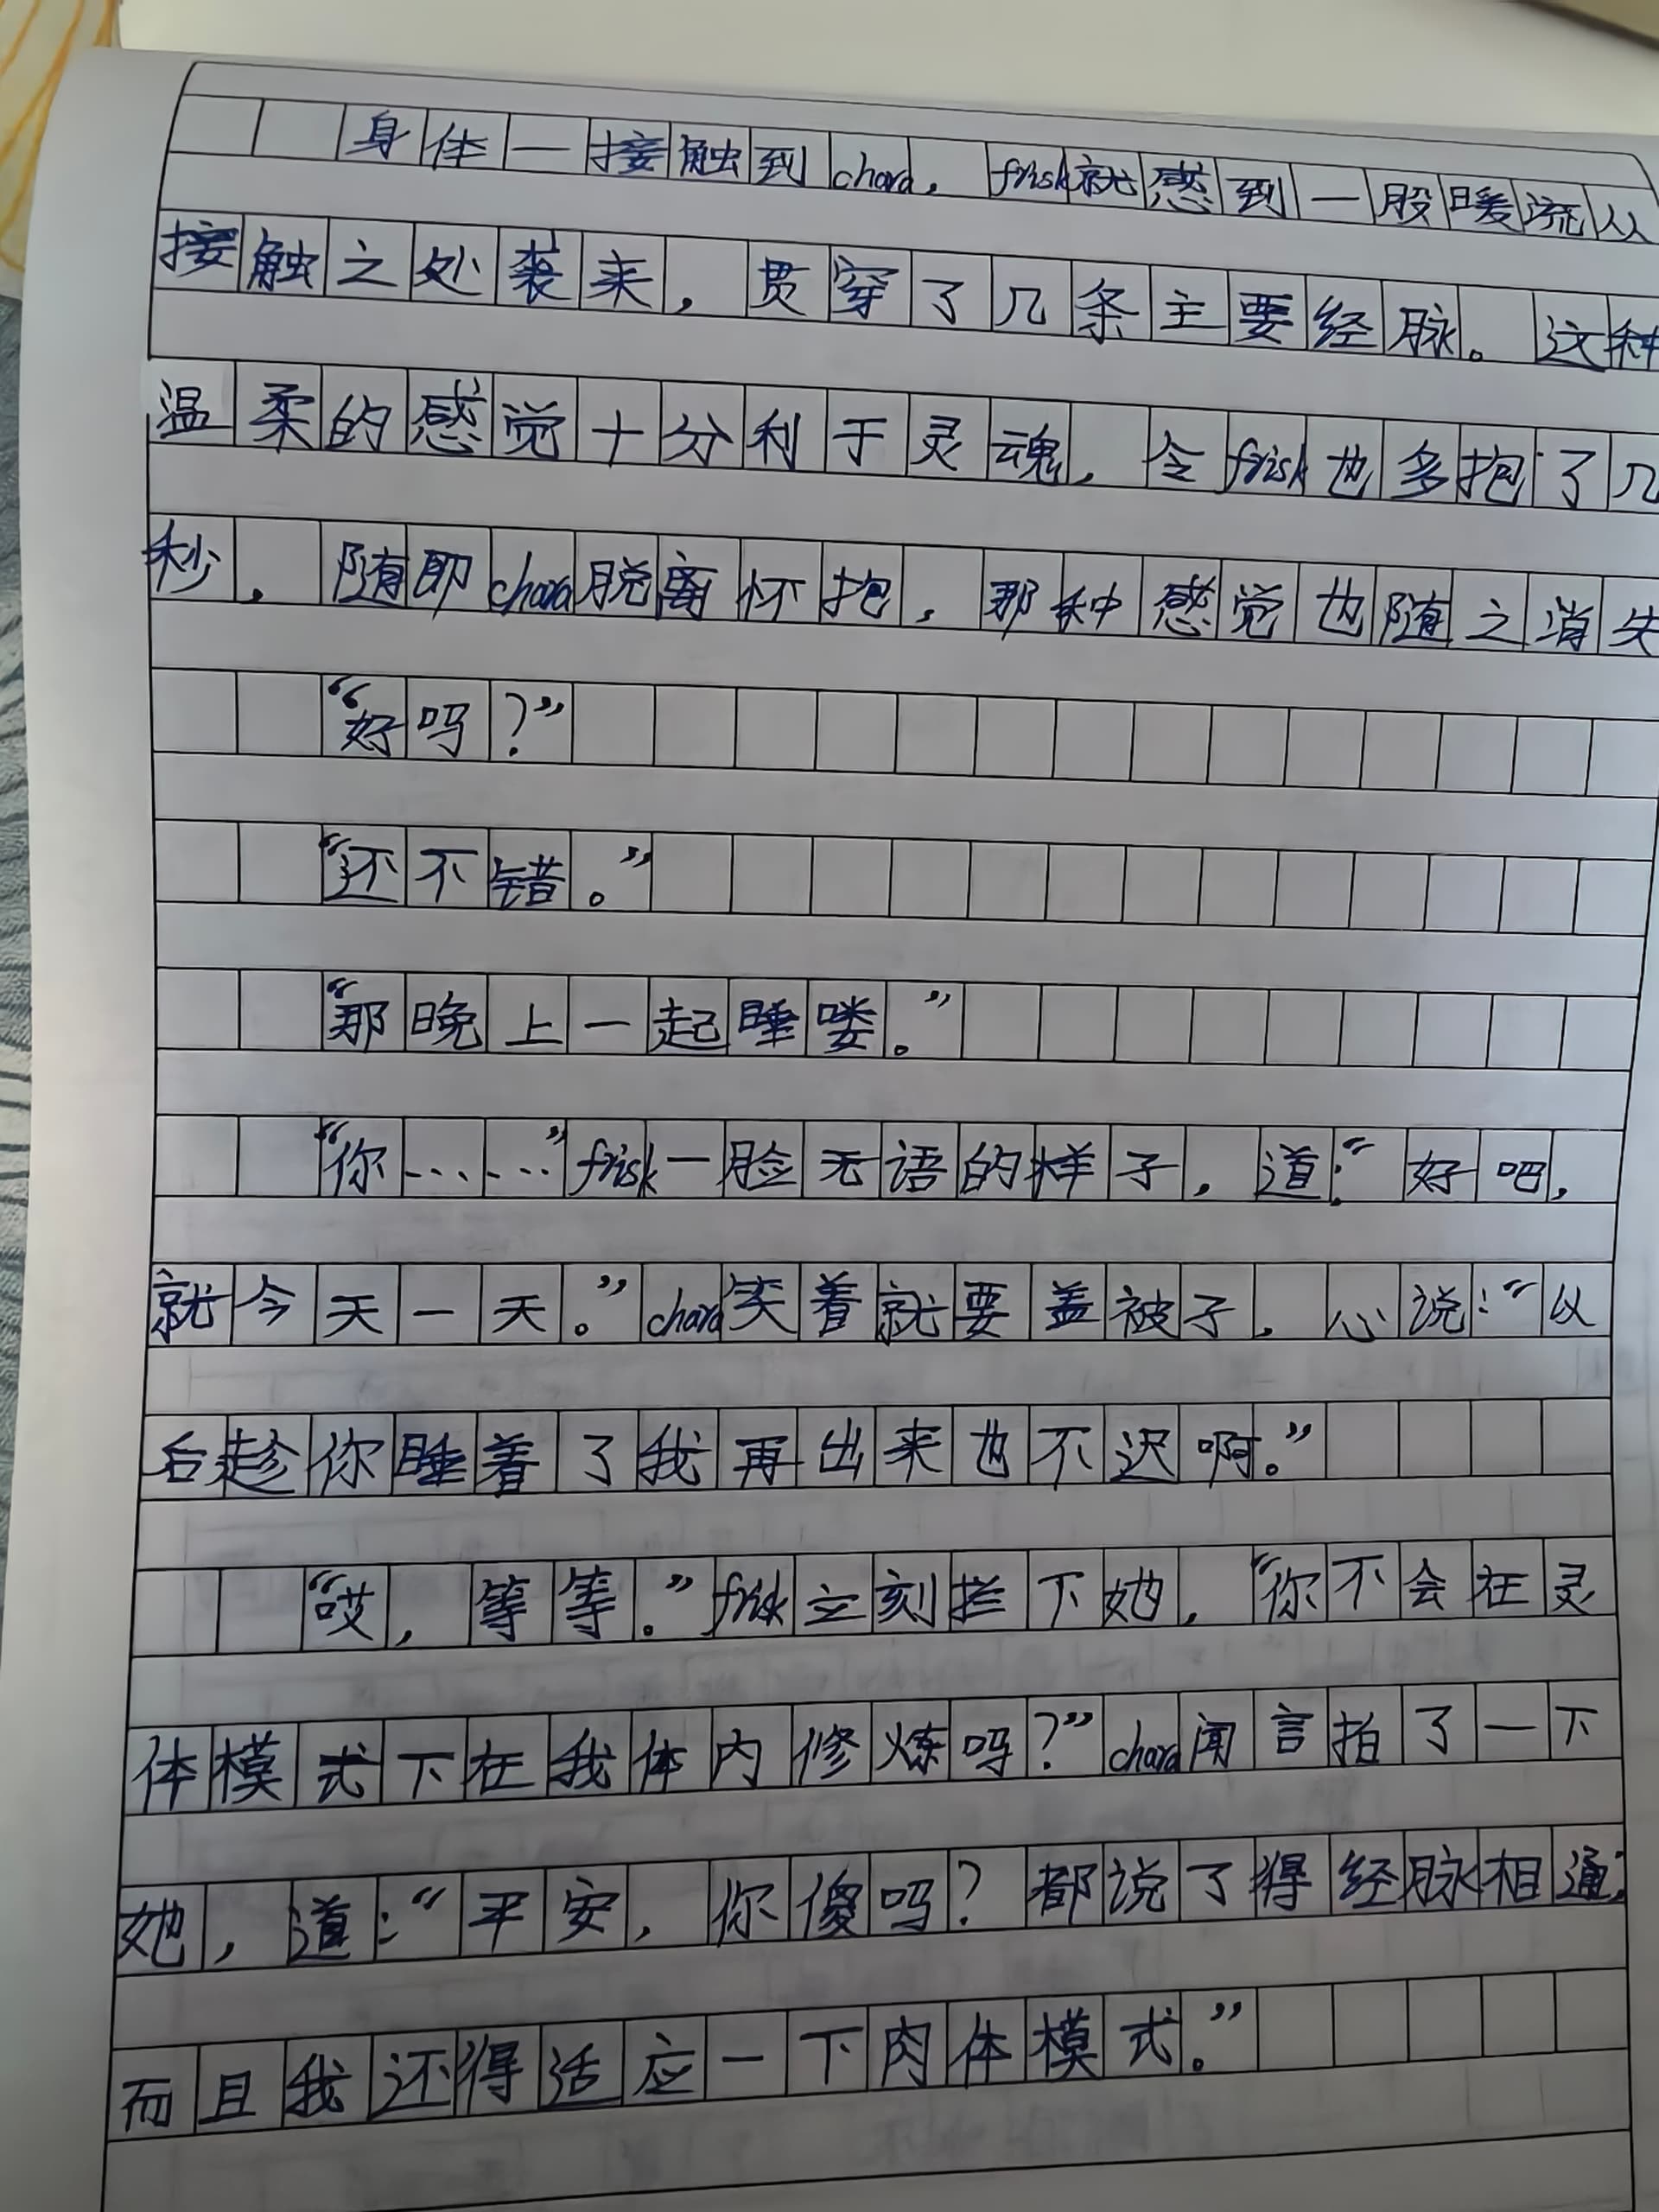 身体一接触到chara，frisk就感到一股暖流从
接触之处袭来，贯穿了几条主要经脉。这种
温柔的感觉十分利于灵魂，令frisk也多抱了几
秒，随即chara脱离怀抱，那种感觉也随之消失
“好吗？”
“还不错。”
“那晚上一起睡喽。”
“你……”frisk一脸无语的样子，道：“好吧，
就今天一天。”chara笑着就要盖被子，心说：“以
后趁你睡着了我再出来也不迟啊。”
“哎，等等。”frisk立刻拦下她，“你不会在灵
体模式下在我体内修炼吗？”chara闻言拍了一下
她，道：“平安，你傻吗？都说了得经脉相通，
而且我还得适应一下肉体模式。”